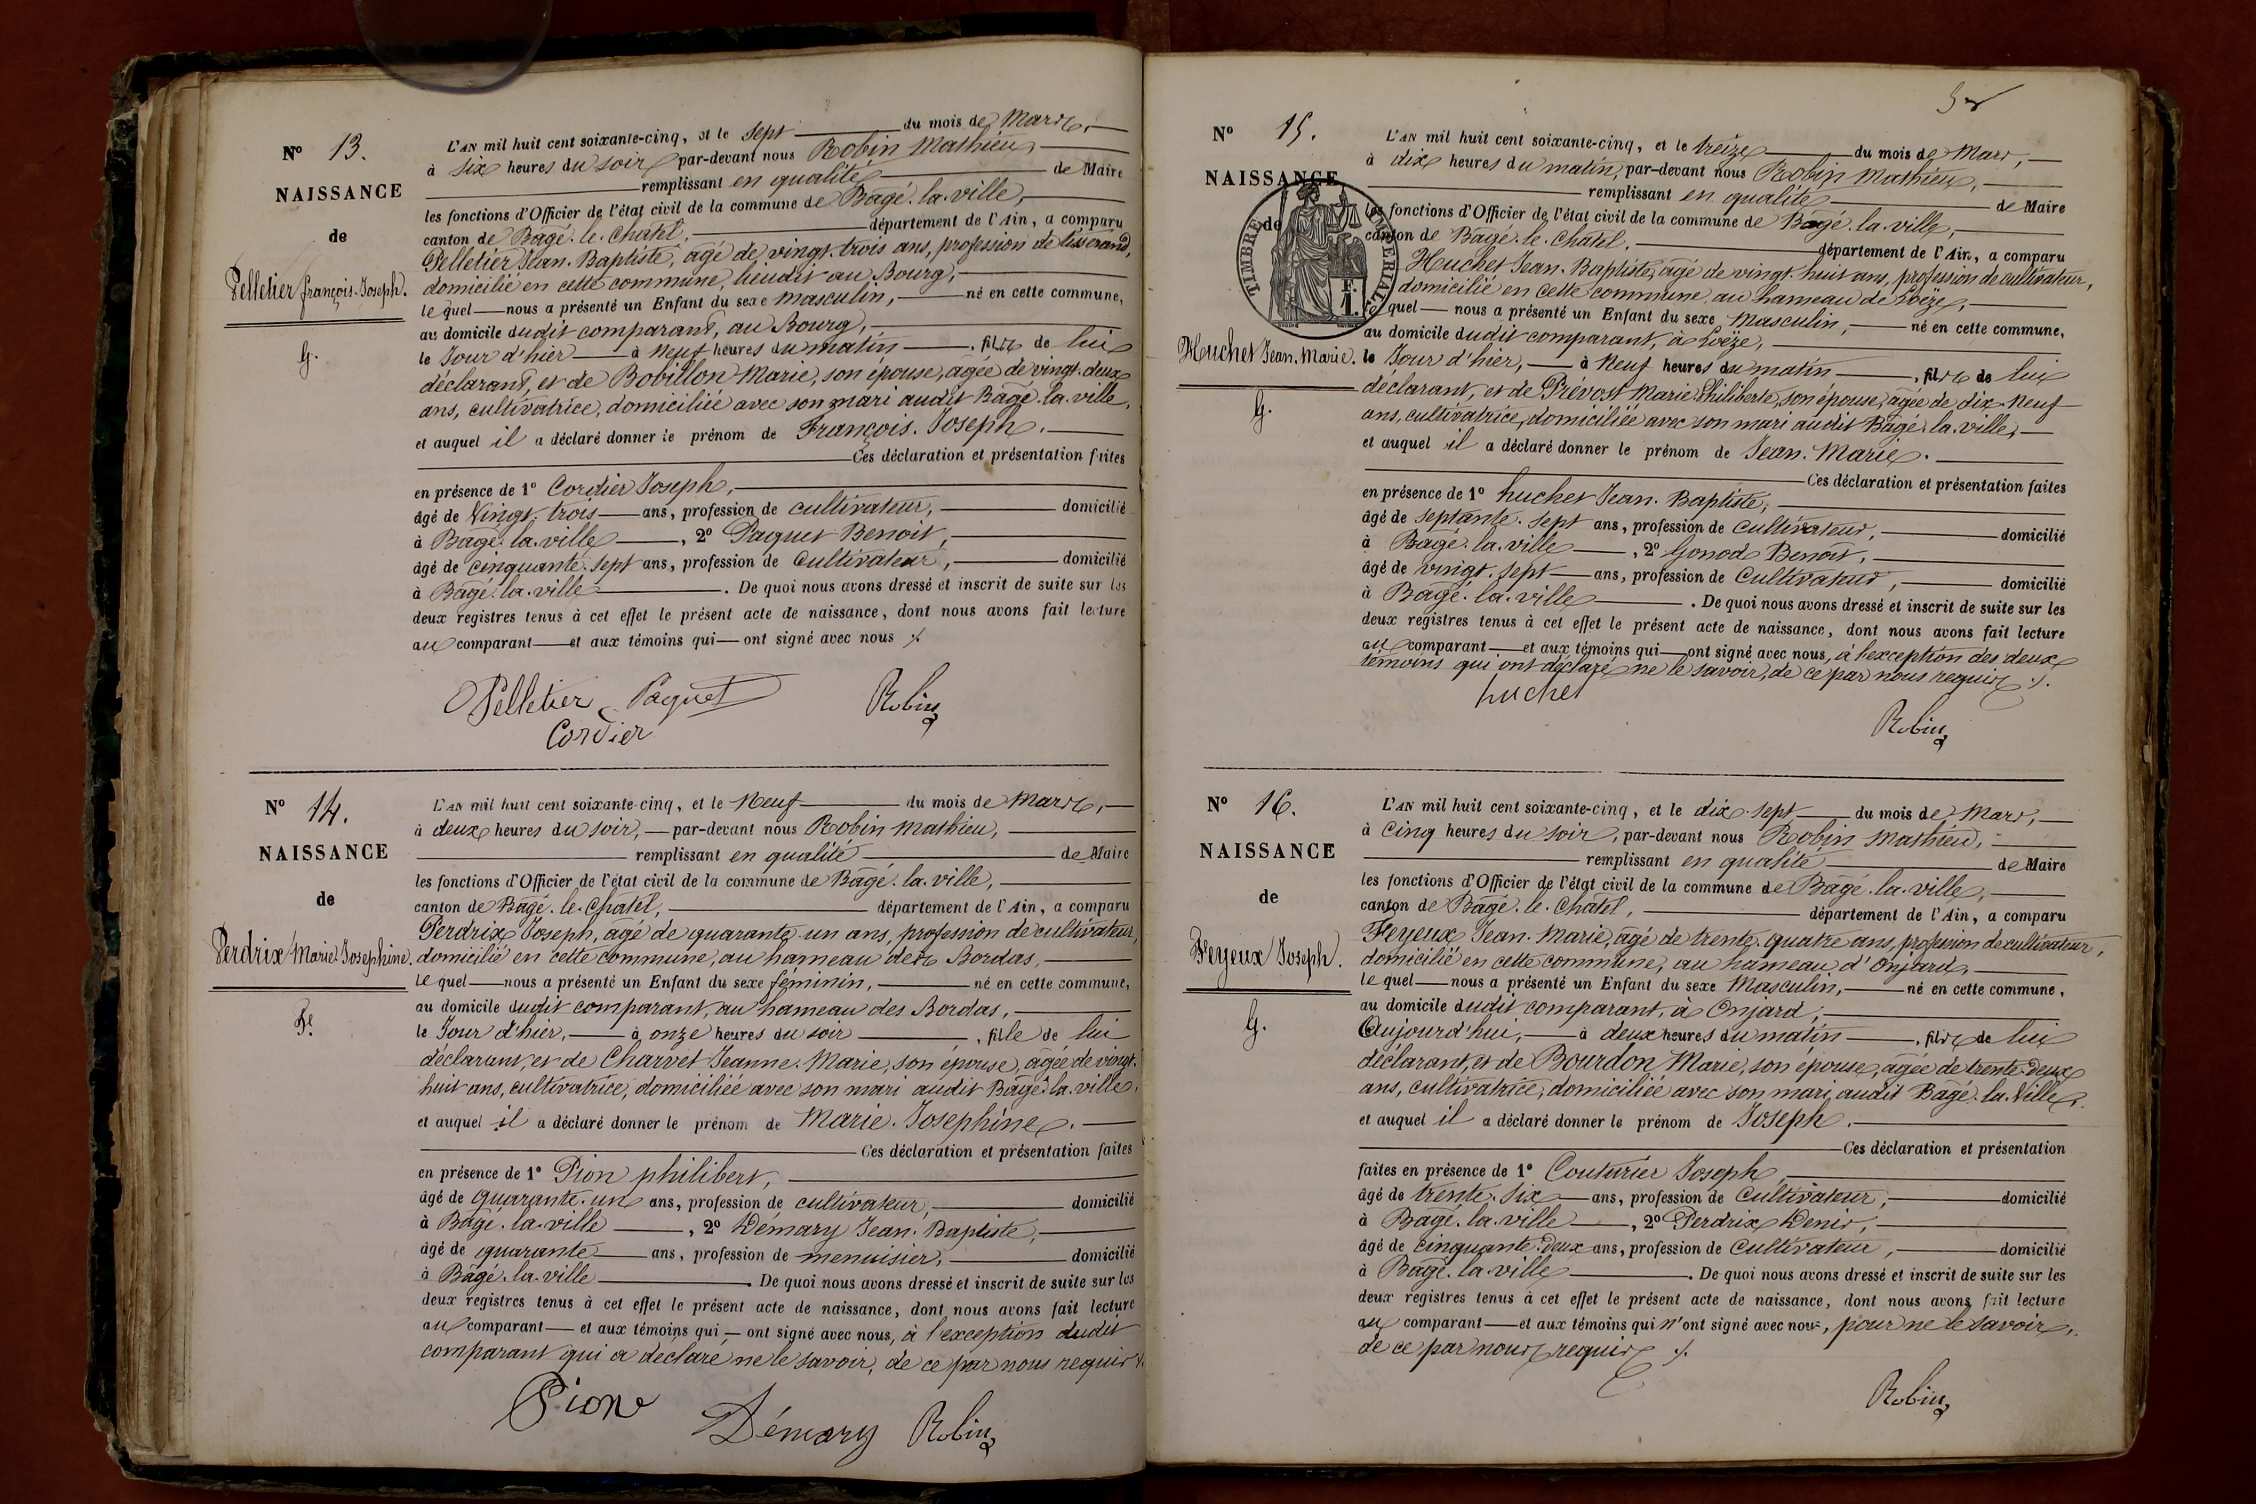 N° 13.
NAISSANCE
de
Pelletier françois-Joseph.
G.
L'AN mil huit cent soixante-cinq, et le sept du mois de Mars,
à six heures du soir par-devant nous Robin Mathieu,
remplissant en qualité de Maire
les fonctions d'Officier de l'état civil de la commune de Bâgé-la-ville,
canton de Bâgé-le-Chatel, département de l'Ain, a comparu
Pelletier Jean-Baptiste, âgé de vingt-trois ans, profession de tisserand,
domicilié en cette commune, lieudit au Bourg,
le quel nous a présenté un Enfant du sexe masculin, né en cette commune,
au domicile dudit comparant, au Bourg,
le Jour d'hier à Neuf heures du matin, fils de lui
déclarant, et de Bobillon Marie, son épouse, âgée de vingt-deux
ans, cultivatrice, domiciliée avec son mari audit Bâgé-la-ville,
et auquel il a déclaré donner le prénom de François-Joseph.
Ces déclaration et présentation faites
en présence de 1° Cordier Joseph,
âgé de Vingt-trois ans, profession de cultivateur, domicilié
à Bâgé-la-ville, 2° Paquet Benoit,
âgé de cinquante-sept ans, profession de Cultivateur, domicilié
à Bâgé-la-ville. De quoi nous avons dressé et inscrit de suite sur les
deux registres tenus à cet effet le présent acte de naissance, dont nous avons fait lecture
au comparant et aux témoins qui ont signé avec nous ./.
Pelletier Paquet Robin
Cordier
N° 14.
NAISSANCE
de
Perdrix Marie Josephine.
Fe
L'AN mil huit cent soixante-cinq, et le Neuf du mois de Mars,
à deux heures du soir, par-devant nous Robin Mathieu,
remplissant en qualité de Maire
les fonctions d'Officier de l'état civil de la commune de Bâgé-la-ville,
canton de Bâgé-le-Chatel, département de l'Ain, a comparu
Perdrix Joseph, âgé de quarante-un ans, profession de cultivateur,
domicilié en cette commune, au hameau des Bordas,
le quel nous a présenté un Enfant du sexe féminin, né en cette commune,
au domicile dudit comparant, au hameau des Bordas,
le Jour d'hier, à onze heures du soir, fille de lui
déclarant, et de Charvet Jeanne-Marie, son épouse, âgée de vingt-
huit ans, cultivatrice, domiciliée avec son mari audit Bâgé-la-ville,
et auquel il a déclaré donner le prénom de Marie-Josephine.
Ces déclaration et présentation faites
en présence de 1° Pion philibert,
âgé de quarante-un ans, profession de cultivateur, domicilié
à Bâgé-la-ville, 2° Démary Jean-Baptiste,
âgé de quarante ans, profession de menuisier, domicilié
à Bâgé-la-ville. De quoi nous avons dressé et inscrit de suite sur les
deux registres tenus à cet effet le présent acte de naissance, dont nous avons fait lecture
au comparant et aux témoins qui ont signé avec nous, à l'exception dudit
comparant qui a déclaré ne le savoir, de ce par nous requis ./.
Pion Démary Robin
N° 15.
NAISSANCE
de
TIMBRE IMPERIAL
1 F.
Huchet Jean-Marie.
G.
L'AN mil huit cent soixante-cinq, et le treize du mois de Mars,
à dix heures du matin, par-devant nous Robin Mathieu,
remplissant en qualité de Maire
les fonctions d'Officier de l'état civil de la commune de Bâgé-la-ville,
canton de Bâgé-le-Chatel, département de l'Ain, a comparu
Huchet Jean-Baptiste, âgé de vingt-huit ans, profession de cultivateur,
domicilié en cette commune, au hameau de Loëze,
le quel nous a présenté un Enfant du sexe Masculin, né en cette commune,
au domicile dudit comparant, à Loëze,
le Jour d'hier, à Neuf heures du matin, fils de lui
déclarant, et de Prévost Marie-Philiberte, son épouse, âgée de dix-Neuf
ans, cultivatrice, domiciliée avec son mari audit Bâgé-la-ville,
et auquel il a déclaré donner le prénom de Jean-Marie.
Ces déclaration et présentation faites
en présence de 1° huchet Jean-Baptiste,
âgé de septante-sept ans, profession de cultivateur, domicilié
à Bâgé-la-ville, 2° Gonod Benoit,
âgé de vingt-sept ans, profession de Cultivateur, domicilié
à Bâgé-la-ville. De quoi nous avons dressé et inscrit de suite sur les
deux registres tenus à cet effet le présent acte de naissance, dont nous avons fait lecture
au comparant et aux témoins qui ont signé avec nous, à l'exception des deux
témoins qui ont déclaré ne le savoir, de ce par nous requis ./.
huchet
Robin
N° 16.
NAISSANCE
de
Feyeux Joseph.
G.
L'AN mil huit cent soixante-cinq, et le dix-sept du mois de Mars,
à Cinq heures du soir, par-devant nous Robin Mathieu,
remplissant en qualité de Maire
les fonctions d'Officier de l'état civil de la commune de Bâgé-la-ville,
canton de Bâgé-le-Châtel, département de l'Ain, a comparu
Feyeux Jean-Marie, âgé de trente-quatre ans, profession de cultivateur,
domicilié en cette commune, au hameau d'Onjard,
le quel nous a présenté un Enfant du sexe Masculin, né en cette commune,
au domicile dudit comparant, à Onjard,
Aujourd'hui, à deux heures du matin, fils de lui
déclarant, et de Bourdon Marie, son épouse, âgée de trente-deux
ans, cultivatrice, domiciliée avec son mari, audit Bâgé-la-Ville,
et auquel il a déclaré donner le prénom de Joseph.
Ces déclaration et présentation
faites en présence de 1° Couturier Joseph,
âgé de trente-six ans, profession de Cultivateur, domicilié
à Bâgé-la-ville, 2° Perdrix Denis,
âgé de cinquante-deux ans, profession de Cultivateur, domicilié
à Bâgé-la-ville. De quoi nous avons dressé et inscrit de suite sur les
deux registres tenus à cet effet le présent acte de naissance, dont nous avons fait lecture
au comparant et aux témoins qui n'ont signé avec nous, pour ne le savoir,
de ce par nous requis ./.
Robin